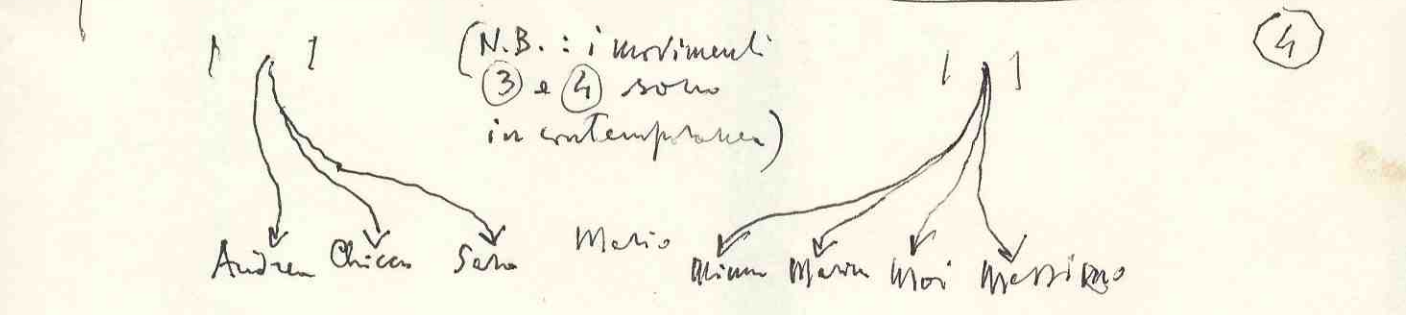 4
(N.B.: i movimenti
3 e 4 sono
in contemporanea)
Andrea Chicca Sara Mario Maria Moi Massimo